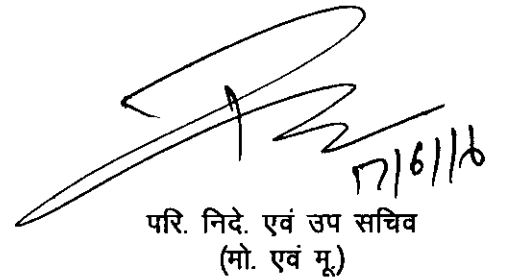 17/6/16
परि. निदे. एवं उप सचिव
(मो. एवं मू.)